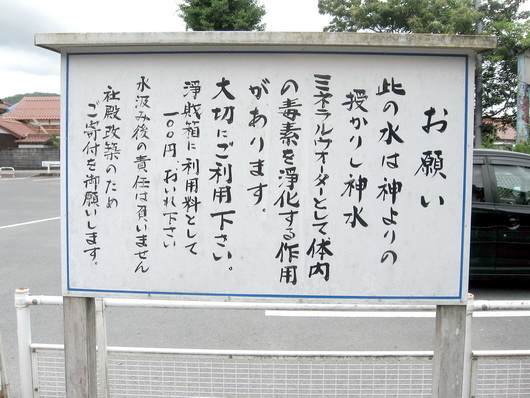 お願い
此の水は神よりの
授かりし神水
ミネラルウオーターとして体内
の毒素を浄化する作用
があります。
大切にご利用下さい。
浄賎箱に利用料として
一〇〇円、おいれ下さい
水汲み後の責任は負いません
社殿改築のため
ご寄付を御願いします。